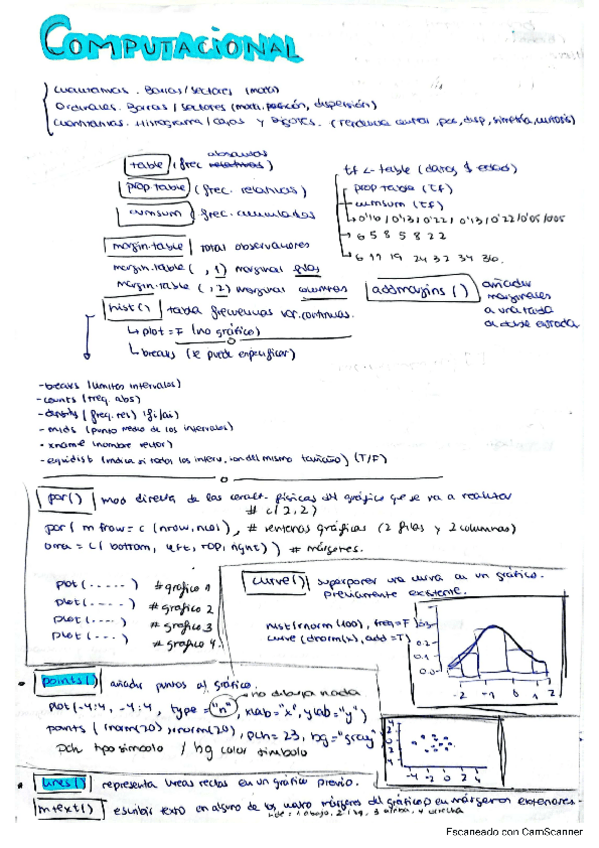 COMPUTACIONAL
Cualitativas. Barras/sectores (moda)
Ordinales. Barras/sectores (moda, posición, dispersión)
Cuantitativas. Histograma/cajas y Bigotes. (tendencia central, pos, disp, simetría, curtosis)
table (frec. relativas) absolutas
prop.table (frec. relativas)
cumsum frec. acumuladas
margin.table total observaciones
margin.table( ,1) marginal filas
margin.table( ,2) marginal columnas
tf <- table (datos $ estado)
prop.table (tf)
cumsum (tf)
0'16 / 0'13 / 0'22 / 0'13 / 0'22 / 0'05 / 0'05
6 5 8 5 8 2 2
6 11 19 24 32 34 36.
addmargins ( ) añadir
marginales
a una tabla
de doble entrada
hist() tabla frecuencias var. continuas.
plot = F (no gráfico)
breaks (se puede especificar)
- breaks (límites intervalos)
- counts (freq. abs)
- density (freq. res) fi/ai
- mids (punto medio de los intervalos)
- xname (nombre vector)
- equidist (indica si todos los interv. son del mismo tamaño) (T/F)
par() modo directa de las caract. físicas del gráfico que se va a realizar
# c(2,2)
par( mfrow = c (nrow, ncol), # ventanas gráficas (2 filas y 2 columnas)
oma = c( bottom, left, top, right) ) # márgenes.
plot (.....) # grafico 1
plot (....) # grafico 2
plot (....) # grafico 3
plot (....) # grafico 4.
curve() superponer una curva en un gráfico.
previamente existente.
hist(rnorm (100), freq = F)
curve (dnorm(x), add = T)
0.3
0.2
0.1
0.0
-2 -1 0 1 2
points() añadir puntos al gráfico.
no dibuja nada
plot (-4:4, -4:4, type = "n", xlab = "x", ylab = "y")
points (rnorm(20), rnorm(20), pch = 23, bg = "gray")
pch tipo simbolo / bg color simbolo
-4 -2 0 2 4
lines() representa lineas rectas en un gráfico previo.
mtext() escribir texto en alguno de los cuatro márgenes del gráfico o en márgenes exteriores.
Escaneado con CamScanner